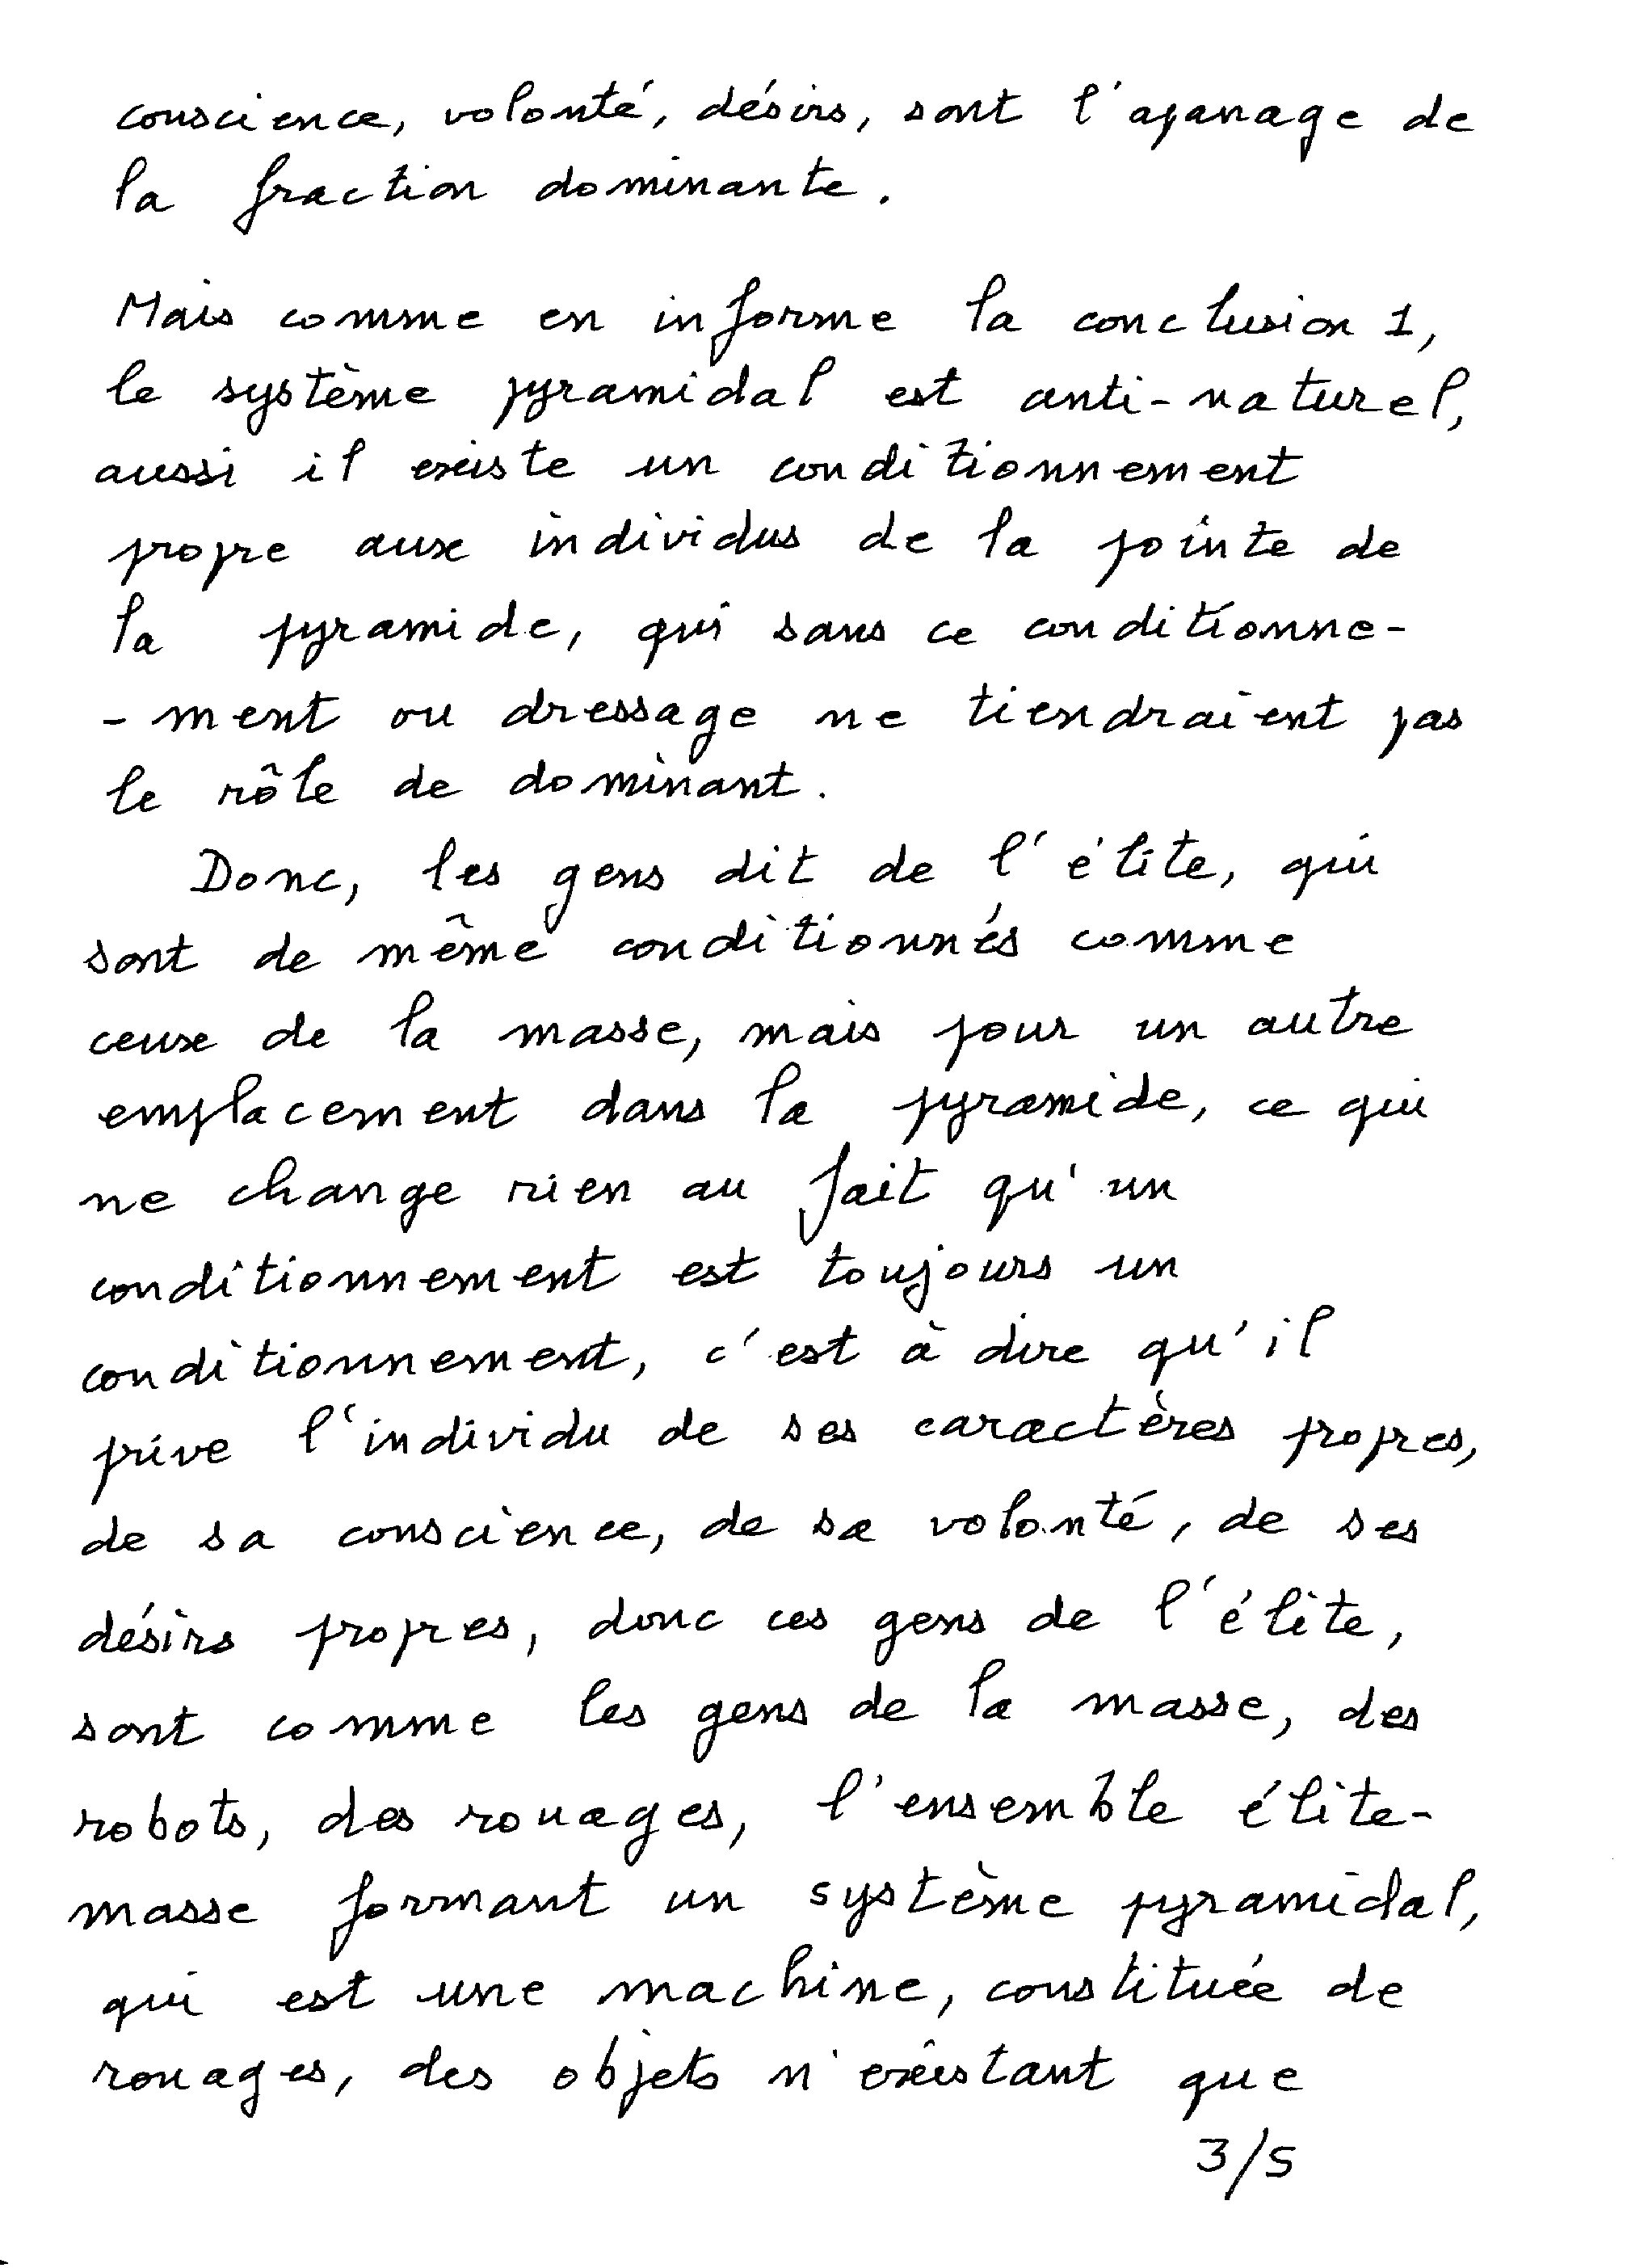 conscience, volonté, désirs, sont l'apanage de
la fraction dominante.
Mais comme en informe la conclusion 1,
le système pyramidal est anti-naturel,
aussi il existe un conditionnement
propre aux individus de la pointe de
la pyramide, qui sans ce conditionne-
-ment ou dressage ne tiendraient pas
le rôle de dominant.
Donc, les gens dit de l'élite, qui
sont de même conditionnés comme
ceux de la masse, mais pour un autre
emplacement dans la pyramide, ce qui
ne change rien au fait qu'un
conditionnement est toujours un
conditionnement, c'est à dire qu'il
prive l'individu de ses caractères propres,
de sa conscience, de sa volonté, de ses
désirs propres, donc ces gens de l'élite,
sont comme les gens de la masse, des
robots, des rouages, l'ensemble élite-
masse formant un système pyramidal,
qui est une machine, constituée de
rouages, des objets n'existant que
3/5